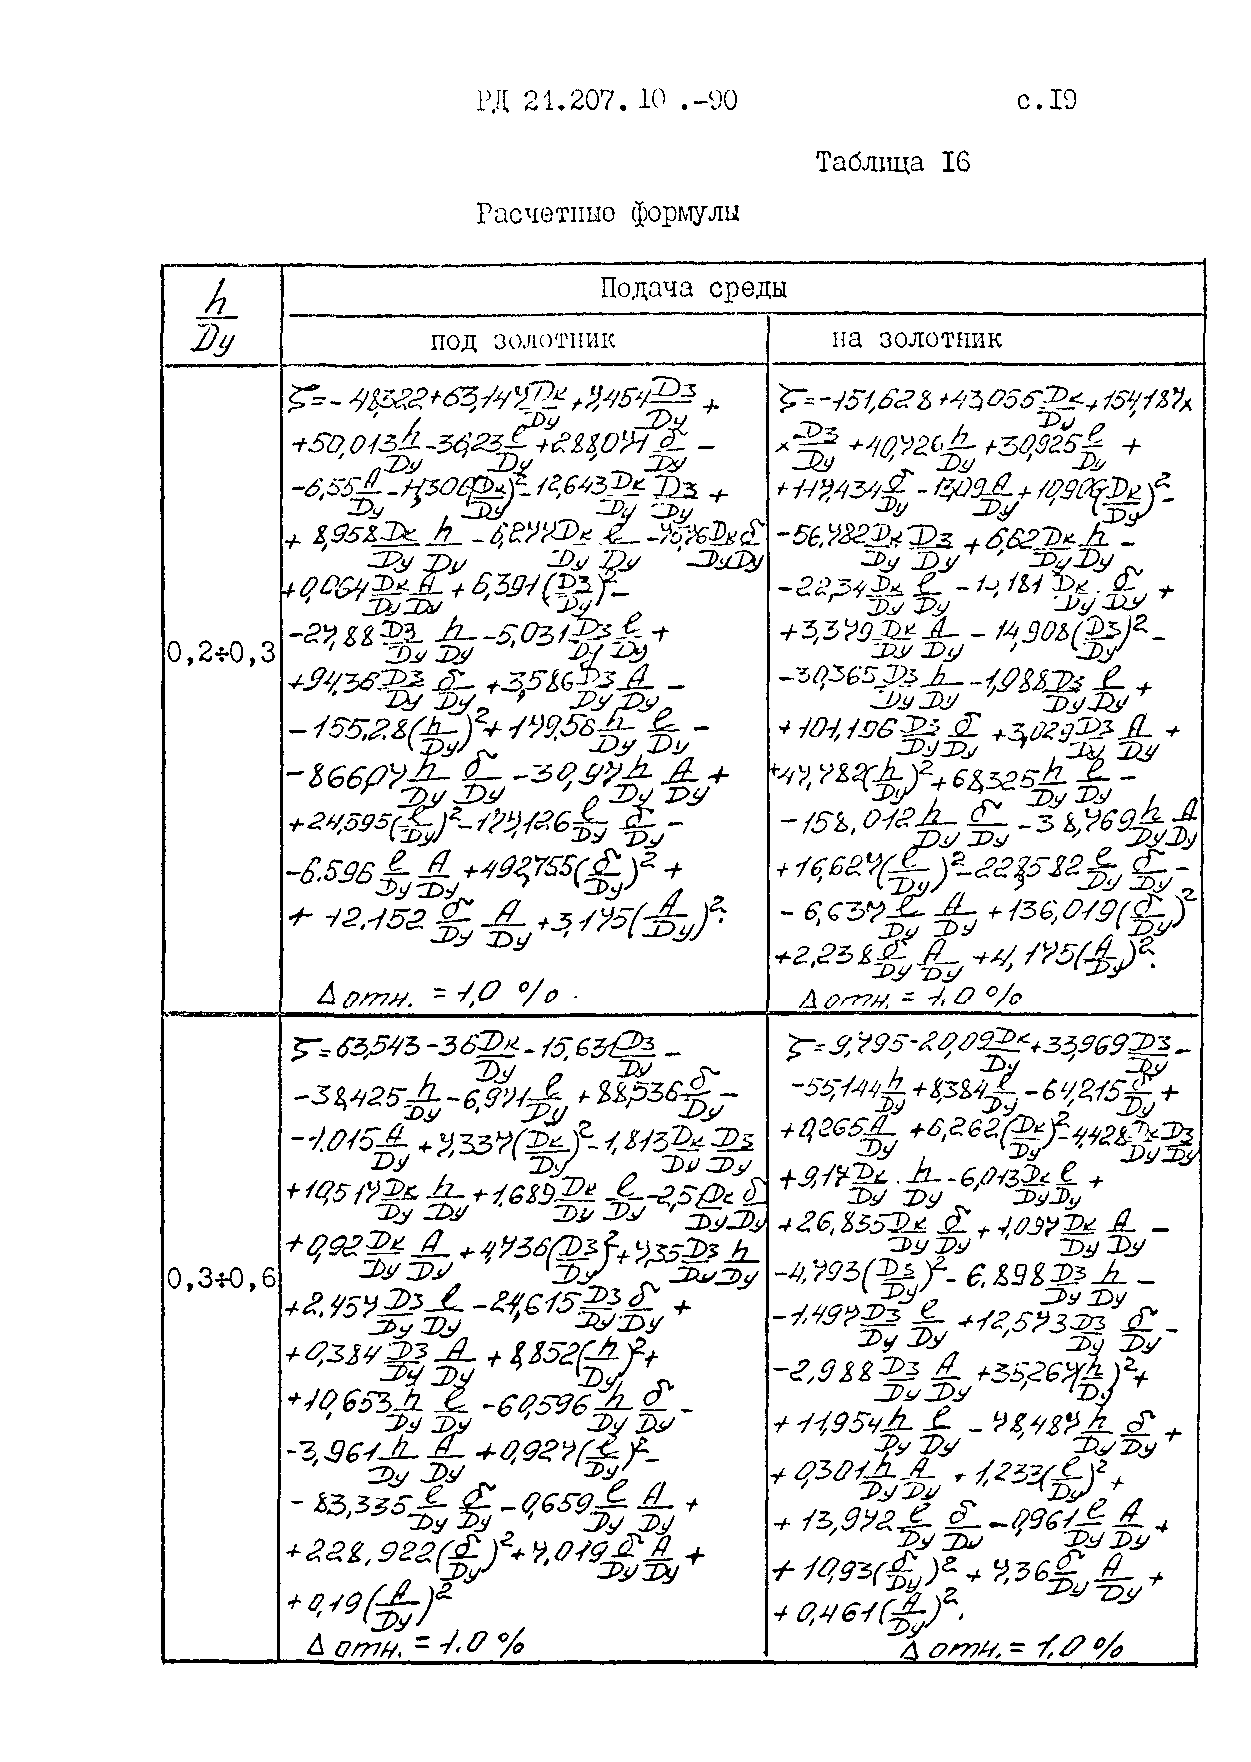 РД 21.207.10 .-90 с.19
Таблица 16
Расчетные формулы
h/Dy
Подача среды
под золотник
на золотник
0,2÷0,3
ζ=-48,322+63,147Dк/Dy+7,454Dз/Dy+
+50,013h/Dy-36,23l/Dy+288,071δ/Dy-
-6,55A/Dy-11,306(Dк/Dy)²-12,643Dк/Dy Dз/Dy+
+8,958Dк/Dy h/Dy-6,277Dк/Dy l/Dy-75,76Dк/Dy δ/Dy
+0,064Dк/Dy A/Dy+6,391(Dз/Dy)²-
-27,88Dз/Dy h/Dy-5,031Dз/Dy l/Dy+
+94,36Dз/Dy δ/Dy+3,586Dз/Dy A/Dy-
-155,28(h/Dy)²+179,56h/Dy l/Dy-
-866,07h/Dy δ/Dy-30,97h/Dy A/Dy+
+24,595(l/Dy)²-177,126l/Dy δ/Dy-
-6.596l/Dy A/Dy+492,755(δ/Dy)²+
+12.152δ/Dy A/Dy+3,175(A/Dy)².
Δотн.=1,0%.
ζ=-151,628+43,056Dк/Dy+154,187×
×Dз/Dy+40,726h/Dy+30,925l/Dy+
+117,434δ/Dy-13,09A/Dy+10,906(Dк/Dy)²-
-56,782Dк/Dy Dз/Dy+6,62Dк/Dy h/Dy-
-22,34Dк/Dy l/Dy-11,181Dк/Dy·δ/Dy+
+3,379Dк/Dy A/Dy-14,908(Dз/Dy)²-
-30,365Dз/Dy h/Dy-1,988Dз/Dy l/Dy+
+101,196Dз/Dy δ/Dy+3,029Dз/Dy A/Dy+
+47,782(h/Dy)²+68,325h/Dy l/Dy-
-158,012h/Dy δ/Dy-38,769h/Dy A/Dy
+16,627(l/Dy)²-223,582l/Dy δ/Dy-
-6,637l/Dy A/Dy+136,019(δ/Dy)²
+2,238δ/Dy A/Dy+4,175(A/Dy)².
Δотн.=1.0%
0,3÷0,6
ζ=63,543-36Dк/Dy-15,631Dз/Dy-
-38,425h/Dy-6,971l/Dy+88,536δ/Dy-
-1.015A/Dy+7,337(Dк/Dy)²-1,813Dк/Dy Dз/Dy
+10,517Dк/Dy h/Dy+1.689Dк/Dy l/Dy-2,51Dк/Dy δ/Dy
+0,92Dк/Dy A/Dy+4,736(Dз/Dy)²+7,35Dз/Dy h/Dy
+2.457Dз/Dy l/Dy-24,615Dз/Dy δ/Dy+
+0,384Dз/Dy A/Dy+8,852(h/Dy)²+
+10,653h/Dy l/Dy-60,596h/Dy δ/Dy-
-3,961h/Dy A/Dy+0,927(l/Dy)²-
-83,335l/Dy δ/Dy-0,659l/Dy A/Dy+
+228,922(δ/Dy)²+7,019δ/Dy A/Dy+
+0,19(A/Dy)²
Δотн.=1.0%
ζ=9,795-20,09Dк/Dy+33,969Dз/Dy-
-55,144h/Dy+8,384l/Dy-64,215δ/Dy+
+0,265A/Dy+6,262(Dк/Dy)²-4,428Dк/Dy Dз/Dy
+9,17Dк/Dy·h/Dy-6,013Dк/Dy l/Dy+
+26,835Dк/Dy δ/Dy+1,097Dк/Dy A/Dy-
-4,793(Dз/Dy)²-6,898Dз/Dy h/Dy-
-1.497Dз/Dy l/Dy+12,573Dз/Dy δ/Dy-
-2,988Dз/Dy A/Dy+35,267(h/Dy)²+
+11,954h/Dy l/Dy-78,487h/Dy δ/Dy+
+0,301h/Dy A/Dy+1,233(l/Dy)²+
+13,972l/Dy δ/Dy-0,961l/Dy A/Dy+
+10,93(δ/Dy)²+7,36δ/Dy A/Dy+
+0,461(A/Dy)².
Δотн.=1,0%